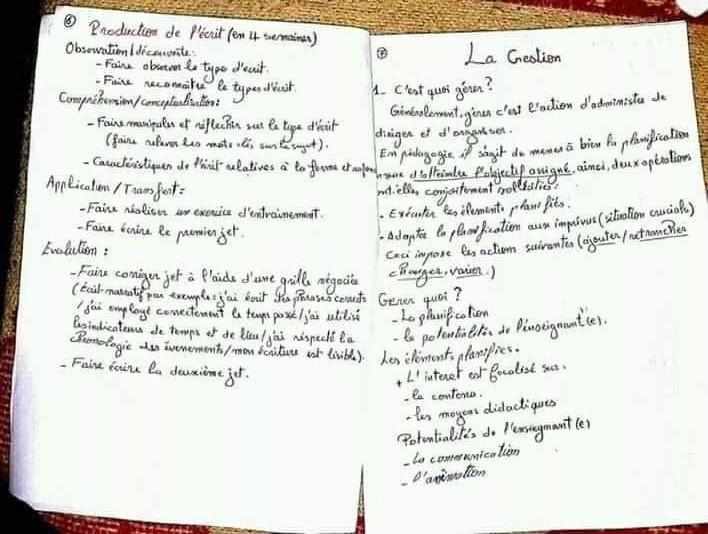 ⑥ Production de l'écrit (en 4 semaines)
Observation/découverte:
- Faire observer le type d'écrit.
- Faire reconnaître le type d'écrit.
Compréhension/conceptualisation:
- Faire manipuler et réfléchir sur le type d'écrit
(faire relever les mots clés sur le sujet).
- Caractéristiques de l'écrit relatives à la forme et au fond
Application/Transfert:
- Faire réaliser un exercice d'entrainement.
- Faire écrire le premier jet.
Evaluation:
- Faire corriger jet à l'aide d'une grille négociée
(écrit narratif par exemple: j'ai écrit des phrases correctes
/j'ai employé correctement le temps passé/j'ai utilisé
les indicateurs de temps et de lieu/j'ai respecté la
chronologie des évènements/mon écriture est lisible).
- Faire écrire la deuxième jet.
⑦ La Gestion
1- C'est quoi gérer?
Généralement, gérer c'est l'action d'administrer de
diriger et d'organiser.
En pédagogie il s'agit de mener à bien la planification
d'atteindre l'objectif assigné, ainsi, deux opérations
sont-elles conjointement sollicités:
. Exécuter les éléments planifiés.
. Adapter la planification aux imprévus (situation cruciale)
Ceci impose les actions suivantes (ajouter/retrancher
changer, varier.)
Gérer quoi?
- La planification
- le potentialités de l'enseignant(e).
Les éléments planifiés.
+ L'intérêt est focalisé sur.
- le contenu.
- les moyens didactiques
Potentialités de l'enseignant(e)
- La communication
- l'animation